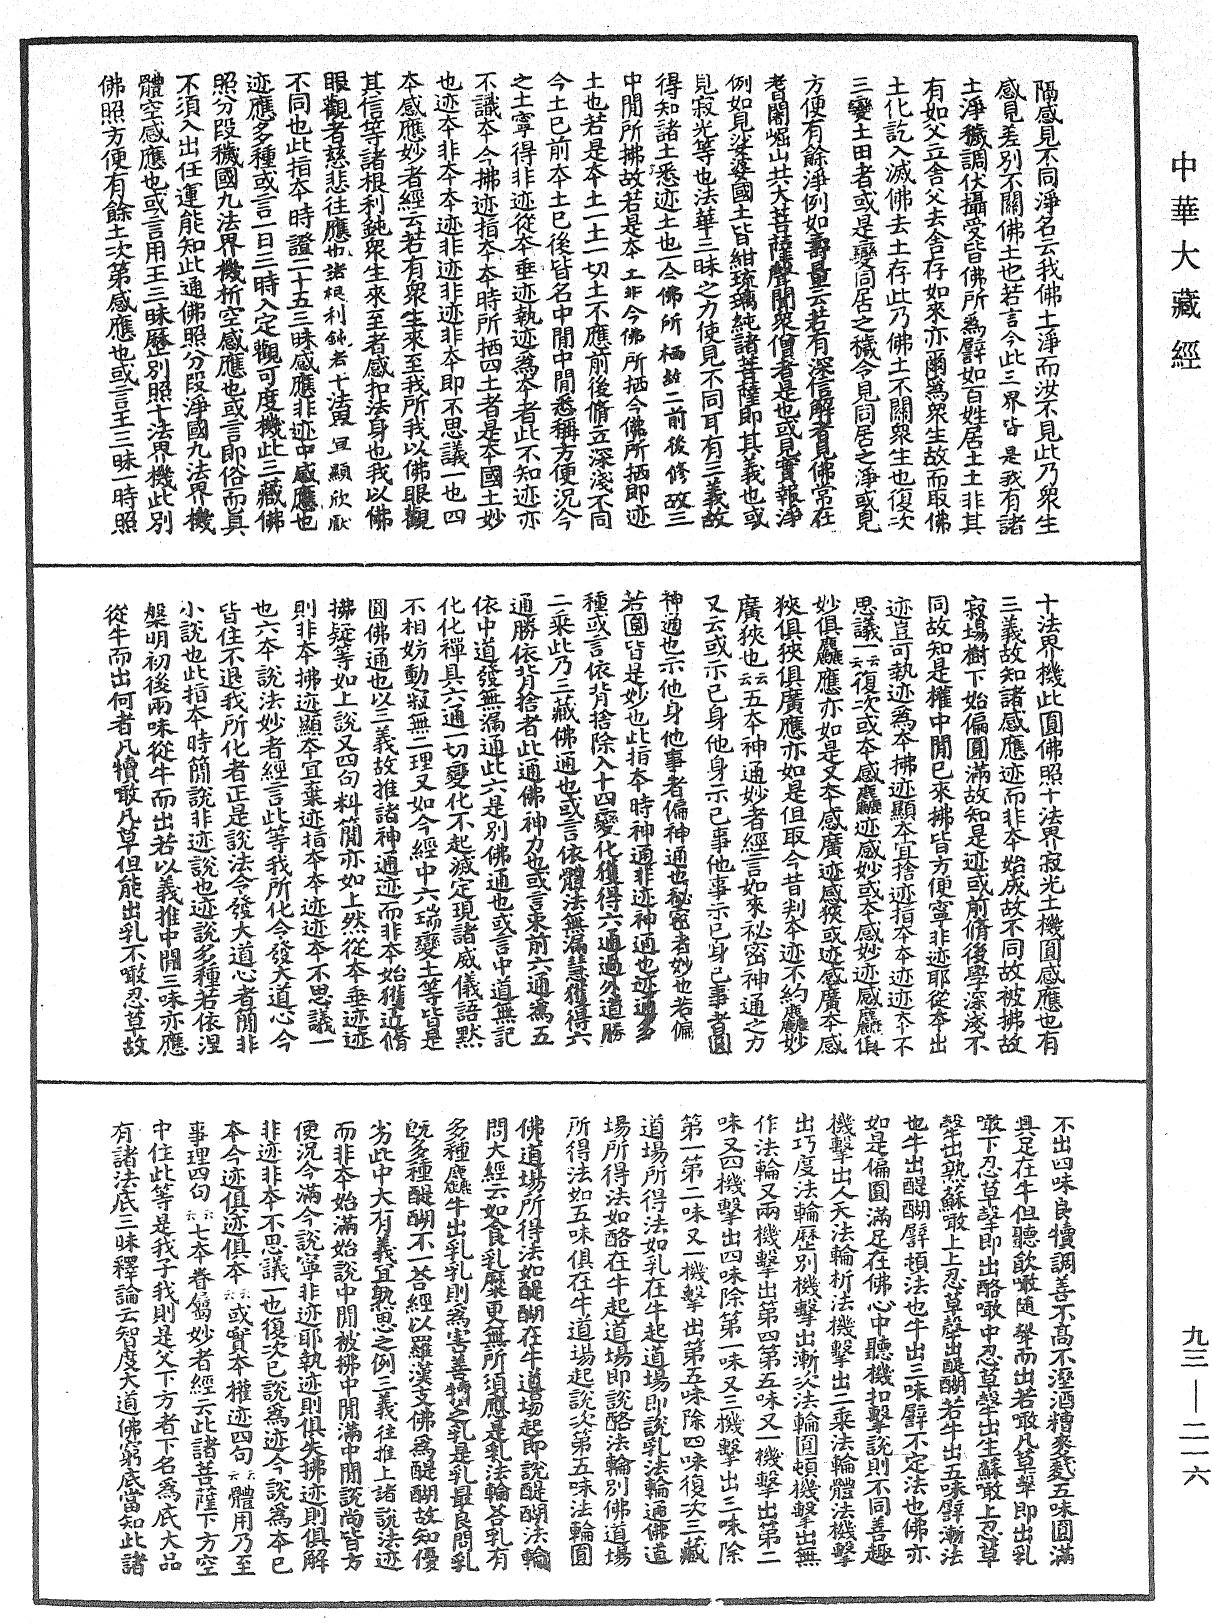 中華大藏經
隔感見不同淨名云我佛土淨而汝不見此乃衆生
感見差別不關佛土也若言今此三界皆是我有諸
土淨穢調伏攝受皆佛所爲譬如百姓居土土非其
有如父立舍父去舍存如來亦爾爲衆生故而取佛
土化訖入滅佛去土存此乃佛土不關衆生也復次
三變土田者或是變同居之穢令見同居之淨或見
方便有餘淨例如壽量云若有深信解者見佛常在
耆闍崛山共大菩薩聲聞衆僧者是也或見實報淨
例如見娑婆國土皆紺琉璃純諸菩薩即其義也或
見寂光等也法華三昧之力使見不同耳有三義故
得知諸土悉迹土也一今佛所栖故二前後修故三
中間所拂故若是本土非今佛所栖今佛所栖即迹
土也若是本土一土一切土不應前後脩立深淺不同
今土已前本土已後皆名中間中間悉稱方便況今
之土寧得非迹從本垂迹執迹爲本者此不知迹亦
不識本今拂迹指本本時所栖四土者是本國土妙
也迹本非本本迹非迹非迹非本即不思議一也四
本感應妙者經云若有衆生來至我所我以佛眼觀
其信等諸根利鈍衆生來至者感扣法身也我以佛
眼觀者慈悲往應也諸根利鈍者十法界宜顯欣猒
不同也此指本時證二十五三昧感應非迹中感應也
迹應多種或言一日三時入定觀可度機此三藏佛
照分段穢國九法界機析空感應也或言即俗而真
不須入出任運能知此通佛照分段淨國九法界機
體空感應也或言用王三昧歷別照十法界機此別
佛照方便有餘土次第感應也或言王三昧一時照
十法界機此圓佛照十法界寂光土機圓感應也有
三義故知諸感應迹而非本始成故不同故被拂故
寂場樹下始偏圓滿故知是迹或前脩後學深淺不
同故知是權中間已來拂皆方便寧非迹耶從本出
迹豈可執迹爲本拂迹顯本宜捨迹指本本迹迹本不
思議一云云復次或本感麤迹感妙或本感妙迹感麤俱
妙俱麤應亦如是又本感廣迹感狹或迹感廣本感
狹俱狹俱廣應亦如是但取今昔判本迹不約麤妙
廣狹也云云五本神通妙者經言如來秘密神通之力
又云或示已身他身示已事他事示已身已事者圓
神通也示他身他事者偏神通也秘密者妙也若偏
若圓皆是妙也此指本時神通非迹神通也迹通多
種或言依背捨除入十四變化獲得六通過外道勝
二乘此乃三藏佛通也或言依體法無漏慧獲得六
通勝依背捨者此通佛神力也或言束前六通爲五
依中道發無漏通此六是別佛通也或言中道無記
化化禪具六通一切變化不起滅定現諸威儀語默
不相妨動寂無二理又如今經中六瑞變土等皆是
圓佛通也以三義故推諸神通迹而非本始獲近脩
拂疑等如上說又四句料簡亦如上然從本垂迹迹
則非本拂迹顯本宜棄迹指本本迹迹本不思議一
也六本說法妙者經言此等我所化令發大道心今
皆住不退我所化者正是說法令發大道心者簡非
小說也此指本時簡說非迹說也迹說多種若依涅
槃明初後兩味從牛而出若以義推中間三味亦應
從牛而出何者凡犢噉凡草但能出乳不噉忍草故
不出四味良犢調善不高不溼酒糟麥䴬五味圓滿
具足在牛但聽飲噉隨聲而出若噉凡草犂即出乳
噉下忍草犂即出酪噉中忍草犂出生蘇噉上忍草
犂出熟蘇噉上上忍草犂出醍醐若牛出五味譬漸法
也牛出醍醐譬頓法也牛出三味譬不定法也佛亦
如是偏圓滿足在佛心中聽機扣擊說則不同善趣
機擊出人天法輪析法機擊出二乘法輪體法機擊
出巧度法輪歷別機擊出漸次法輪圓頓機擊出無
作法輪又兩機擊出第四第五味又一機擊出第二
味又四機擊出四味除第一味又三機擊出三味除
第一第二味又一機擊出第五味除四味復次三藏
道場所得法如乳在牛起道場即說乳法輪通佛道
場所得法如酪在牛起道場即說酪法輪別佛道場
所得法如五味俱在牛道場起說次第五味法輪圓
佛道場所得法如醍醐在牛道場起即說醍醐法輪
問大經云如食乳糜更無所須應是乳法輪答乳有
多種麤牛出乳乳則爲害善犢之乳是乳最良問乳
旣多種醍醐不一答經以羅漢支佛爲醍醐故知優
劣此中大有義宜熟思之例三義往推上諸說法迹
而非本始滿始說中間被拂中間滿中間說尚皆方
便況今滿今說寧非迹耶執迹則俱失拂迹則俱解
非迹非本不思議一也復次已說爲迹今說爲本已
本今迹俱迹俱本云云或實本權迹四句云云體用乃至
事理四句云云七本眷屬妙者經云此諸菩薩下方空
中住此等是我子我則是父下方者下名爲底大品
有諸法底三昧釋論云智度大道佛窮底當知此諸
九三—二一六